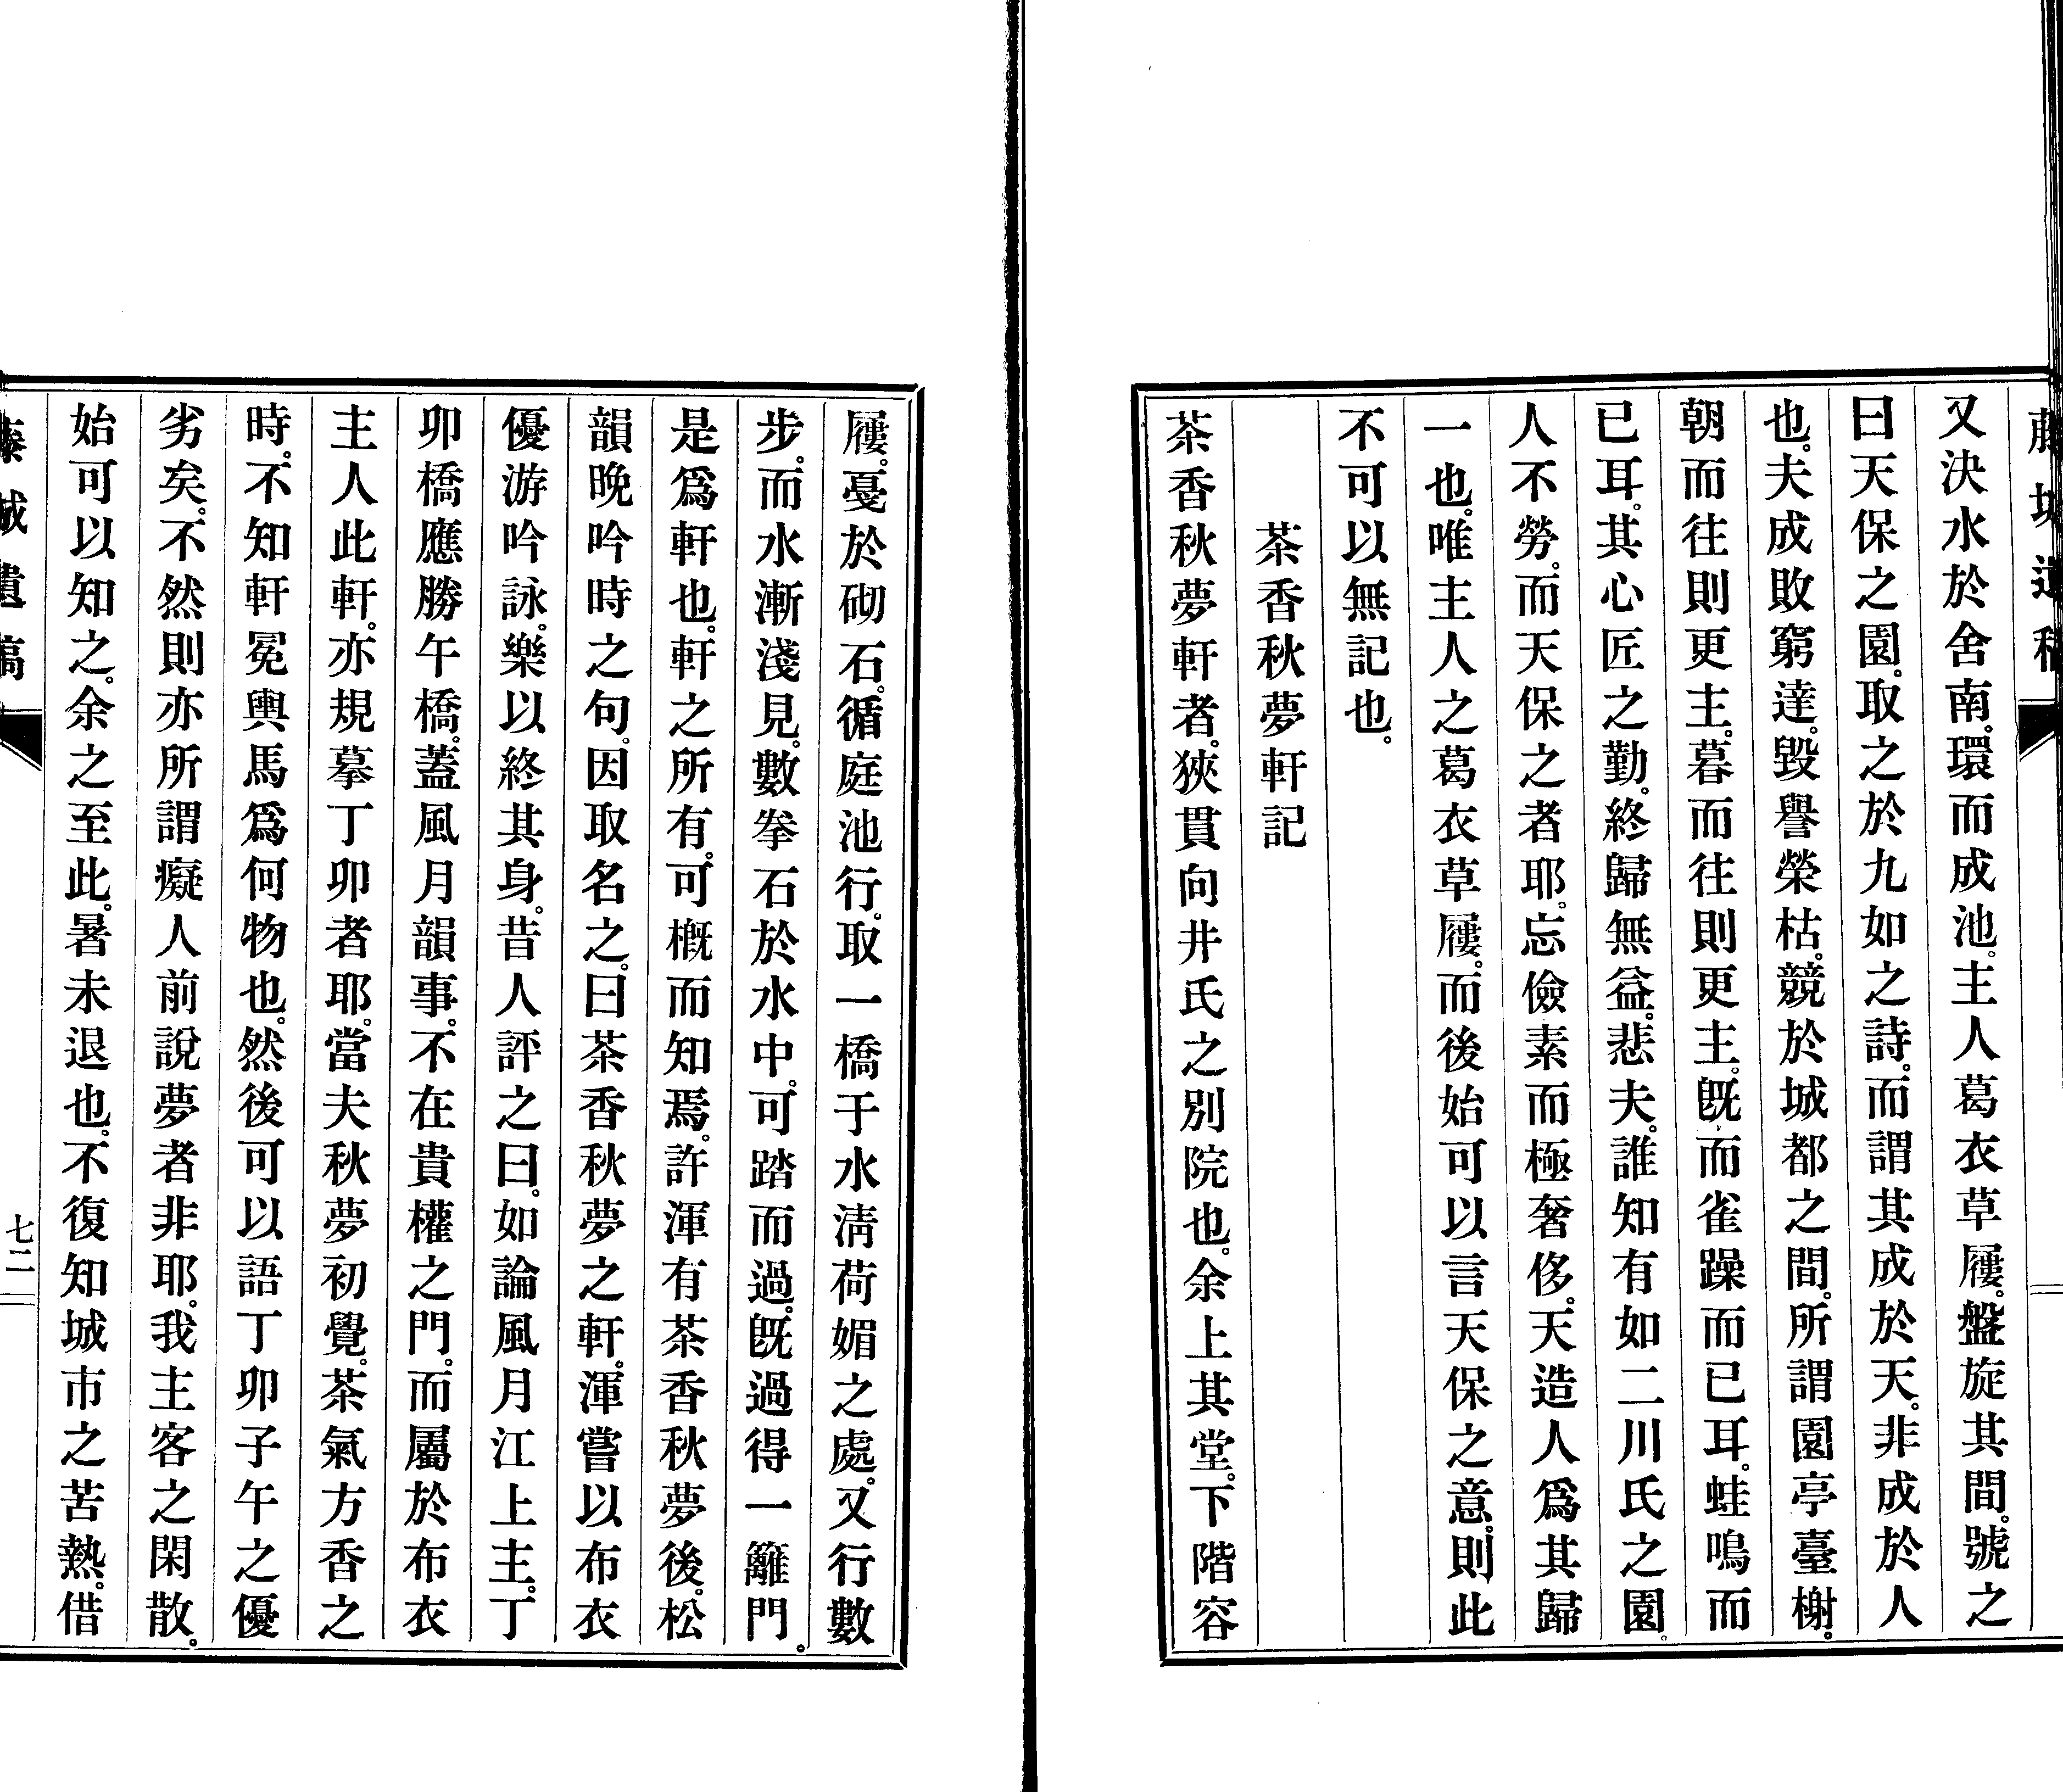 又決水於舍南。環而成池。主人葛衣草屨。盤旋其間。號之
曰天保之園。取之於九如之詩。而謂其成於天。非成於人
也。夫成敗窮達。毀譽榮枯。競於城都之間。所謂園亭臺榭。
朝而往則更主。暮而往則更主。既而雀躁而已耳。蛙鳴而
已耳。其心匠之勤。終歸無益。悲夫。誰知有如二川氏之園。
人不勞。而天保之者耶。忘儉素而極奢侈。天造人爲其歸
一也。唯主人之葛衣草屨。而後始可以言天保之意。則此
不可以無記也。
茶香秋夢軒記
茶香秋夢軒者。狹貫向井氏之別院也。余上其堂。下階容
屨。戞於砌石。循庭池行。取一橋于水淸荷媚之處。又行數
步。而水漸淺見。數拳石於水中。可踏而過。既過得一籬門。
是爲軒也。軒之所有。可槪而知焉。許渾有茶香秋夢後。松
韻晚吟時之句。因取名之。曰茶香秋夢之軒。渾嘗以布衣
優游吟詠。樂以終其身。昔人評之曰。如論風月江上主。丁
卯橋應勝午橋。蓋風月韻事。不在貴權之門。而屬於布衣
主人此軒。亦規摹丁卯者耶。當夫秋夢初覺。茶氣方香之
時。不知軒冕輿馬爲何物也。然後可以語丁卯子午之優
劣矣。不然則亦所謂癡人前說夢者非耶。我主客之閑散。
始可以知之。余之至此。暑未退也。不復知城市之苦熱。借
七二